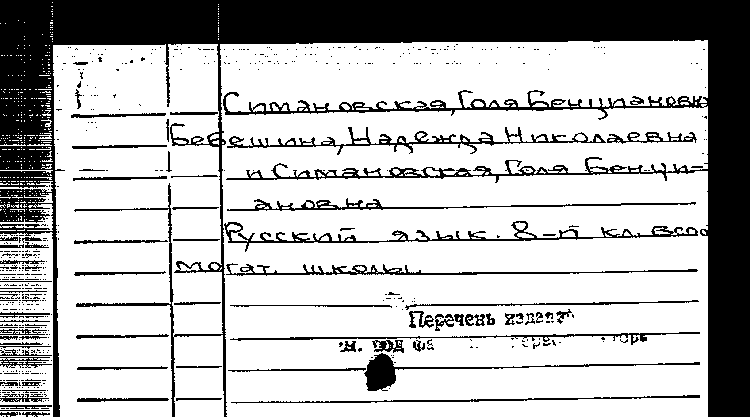 Симановская, Голя Бенциановна
Бебешина, Надежда Николаевна
и Симановская, Голя Бенци-
ановна
Русский язык. 8-й кл. вспо
могат. школы.
Перечень изданий
см. под